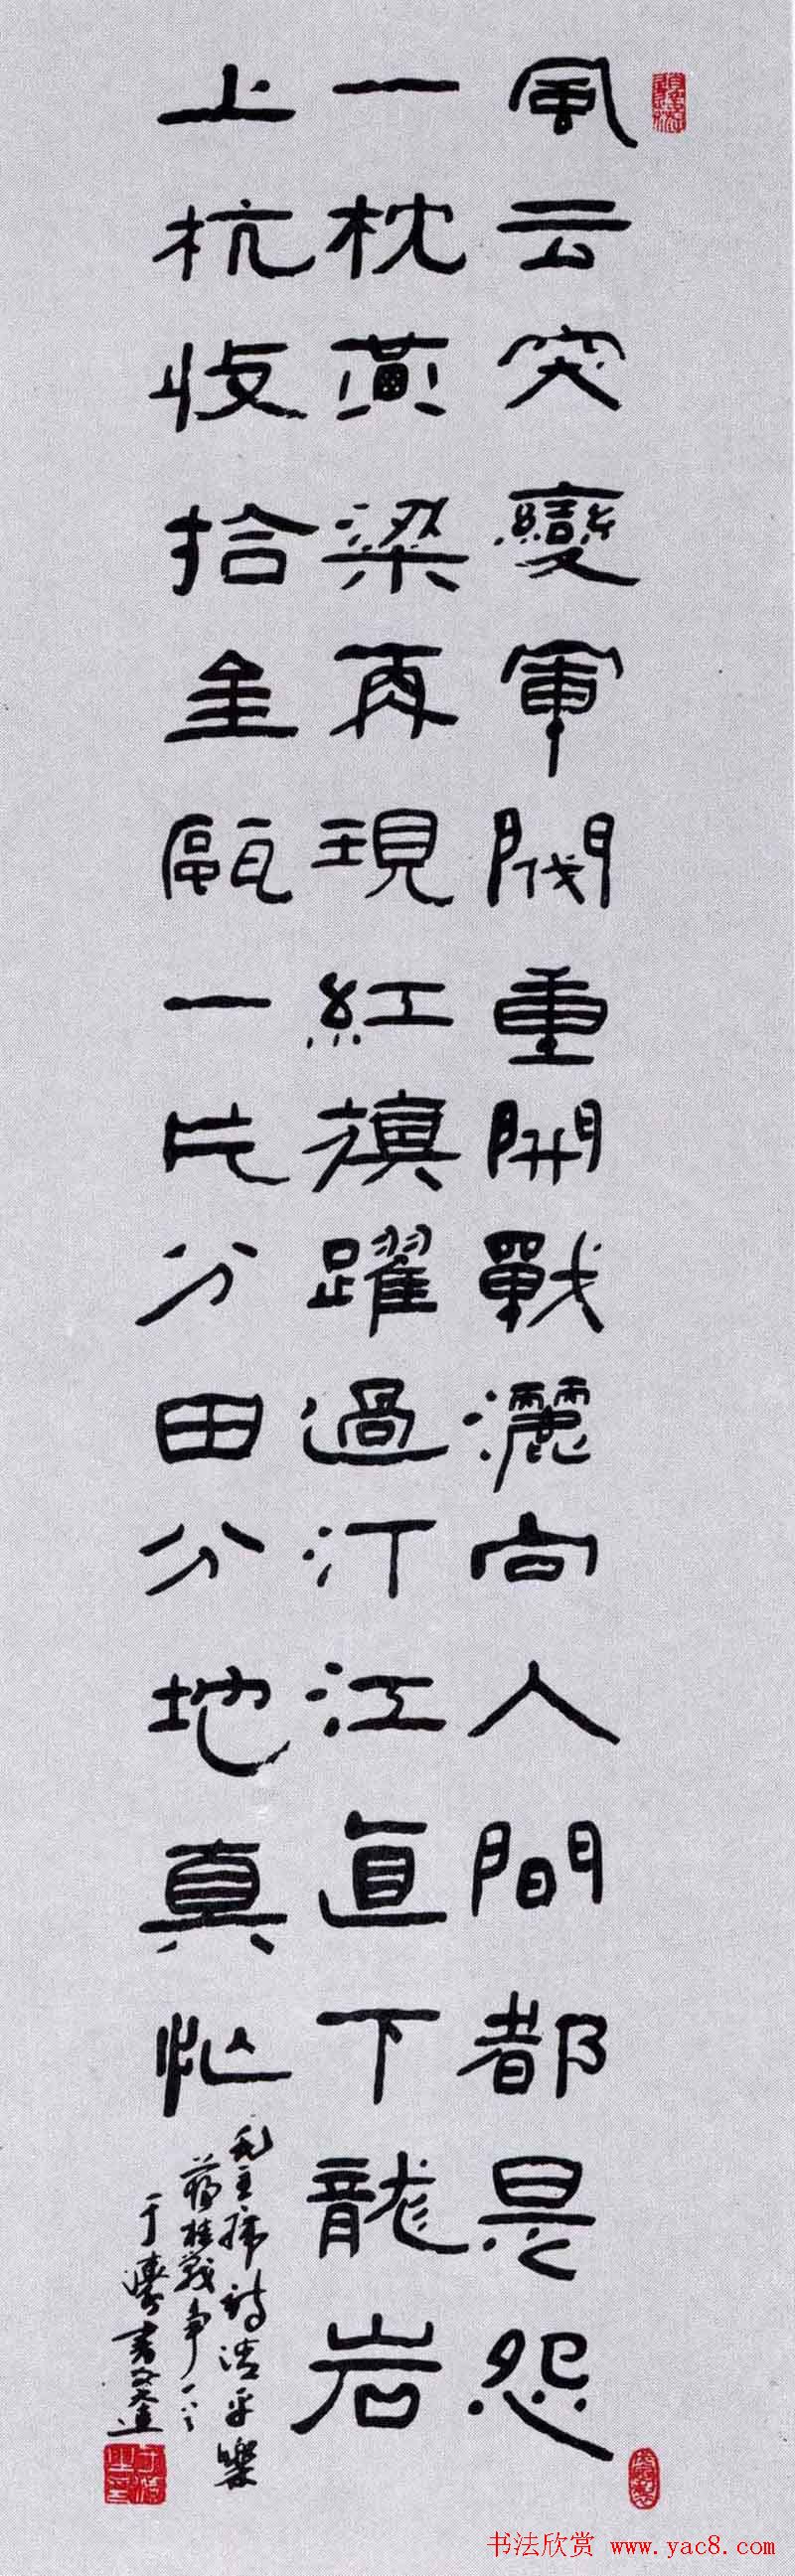 風云突變軍閥重開戰灑向人間都是怨
一枕黃梁再現紅旗躍過汀江直下龍岩
上杭收拾金甌一片分田分地真忙
毛主席詩清平樂
蔣桂戰争
于濤書
书法欣赏 www.yac8.com